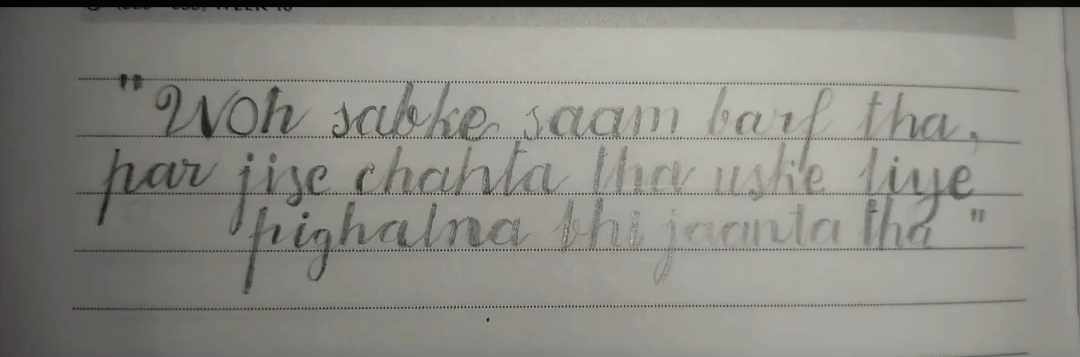 "Woh sabke saam barf tha,
par jise chahta tha uske liye
pighalna bhi jaanta tha"